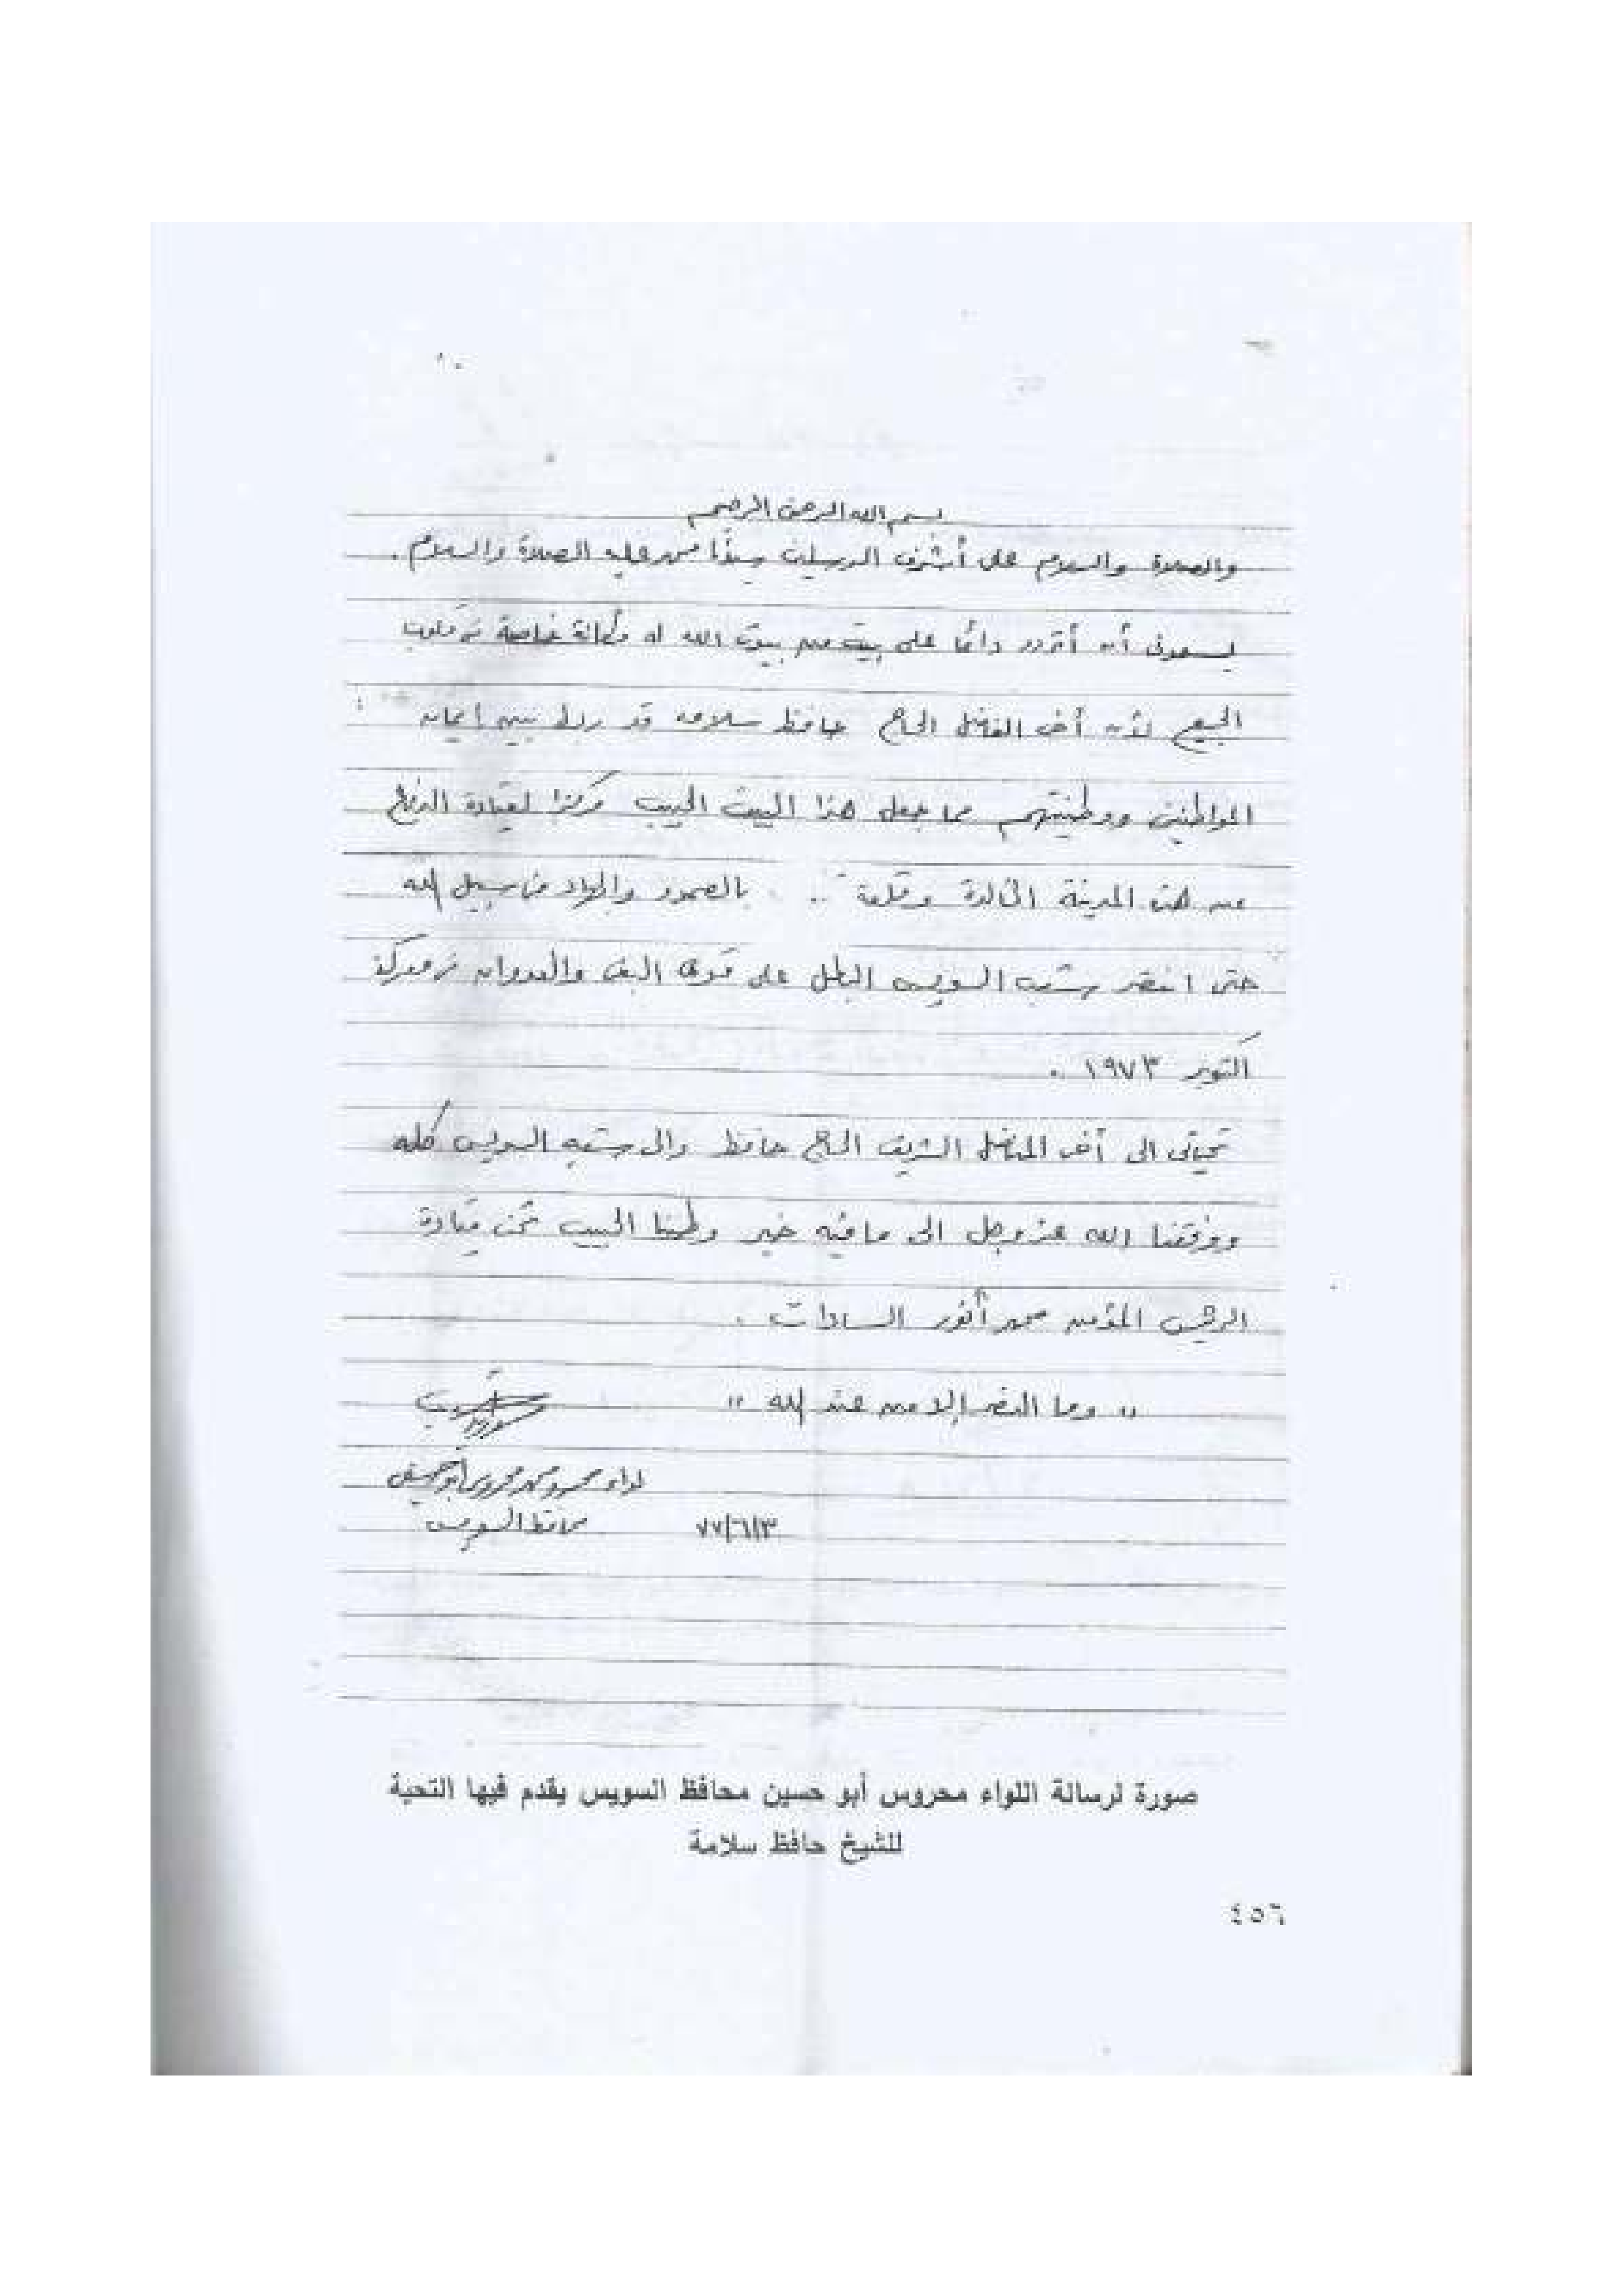 بسم الله الرحمن الرحيم
والصلاة والسلام على أشرف المرسلين سيدنا محمد عليه الصلاة والسلام .
يسعدنى أن أتردد دائما على بيت من بيوت الله له مكانة خاصة فى قلوب
الجميع لأن أخى الفاضل الحاج حافظ سلامه قد ربط بين ايمان
المواطنين ووطنيتهم مما جعل هذا البيت الحبيب مركزا لقيادة الدفاع
عن هذه المدينة الخالدة وقلعة .. بالصمود والجهاد فى سبيل الله
حتى انتصر شعب السويس البطل على قوى البغى والعدوان فى معركة
أكتوبر ١٩٧٣ .
تحياتى الى أخى المناضل الشريف الحاج حافظ والى شعب السويس كله
ووفقنا الله عز وجل الى ما فيه خير وطننا الحبيب تحت قيادة
الرئيس المؤمن محمد أنور السادات .
" وما النصر إلا من عند الله "
لواء محمد محروس أبو حسين
٧٧/٦/٣ محافظ السويس
صورة لرسالة اللواء محروس أبو حسين محافظ السويس يقدم فيها التحية
للشيخ حافظ سلامة
٤٥٦